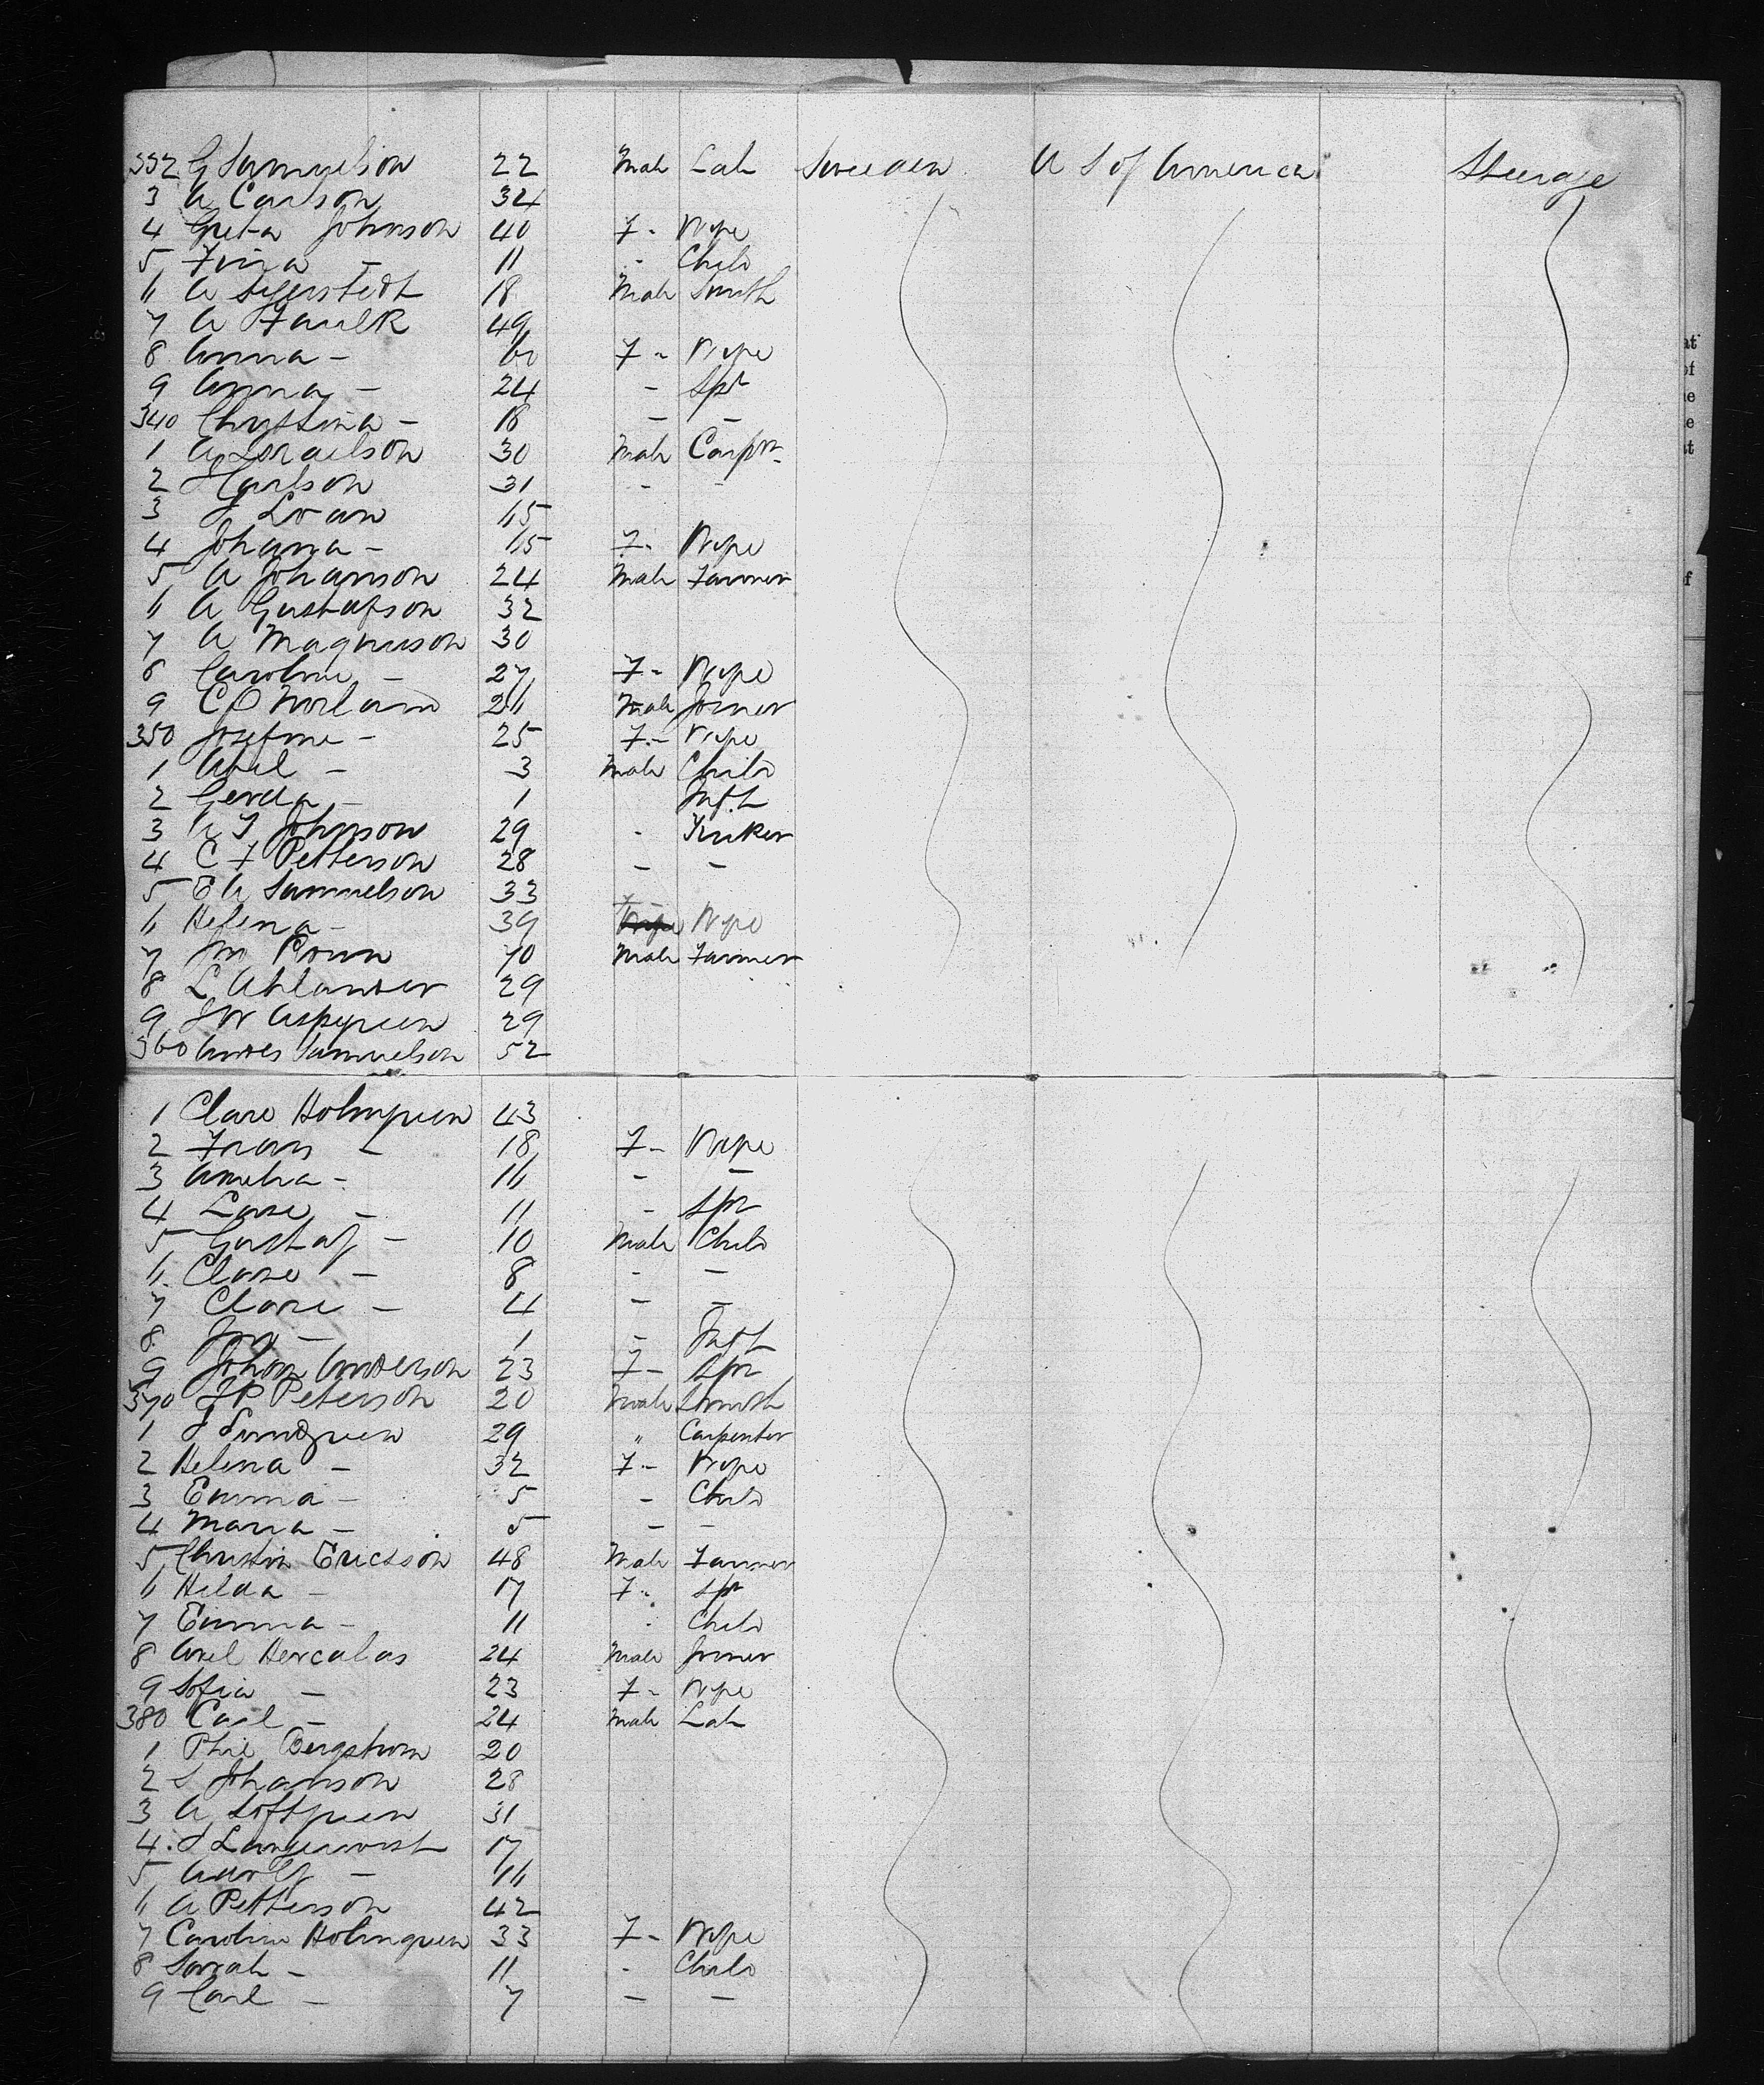 332 G Samuelson 22 Male Lab Sweden U S of America Steerage
3 A Carlson 34
4 Greta Johnson 40 F - Wife
5 Fina - 11 - Child
6 A Segerstedt 18 Male Smith
7 A Faulk 49
8 Anna - 60 F - Wife
9 Anna - 24 - Spr
340 Christina - 18 - -
1 A Israelson 30 Male Carptr
2 Karlson 31 - -
3 J Loan 65
4 Johana - 65 F - Wife
5 A Johanson 24 Male Farmer
6 A Gustafson 32
7 A Magnuson 30
8 Caroline - 27 F - Wife
9 C O Norland 26 Male Joiner
350 Josefine - 25 F - Wife
1 Abel - 3 Male Child
2 Gerda - 1 Inft
3 A J Johnson 29 - Tinker
4 C F Petterson 28 - -
5 E A Samuelson 33
6 Helena - 39 F - Wife
7 Jno 70 Male Farmer
8 L Ahlander 29
9 J W Aspgreen 29
360 Andes Samuelson 52
1 Clare Holmgreen 43
2 Frans - 18 F - Wife
3 Amelia - 16 - -
4 Lane - 11 - Spr
5 Gustaf - 10 Male Child
6 Clane - 8 - -
7 Clare - 4 - -
8 Jno - 1 - Inft
9 Johan Anderson 23 F - Spr
370 J P Peterson 20 Male Smith
1 J Lundgreen 29 " Carpenter
2 Helena - 32 F - Wife
3 Emma - 5 - Child
4 Maria - 5 - -
5 Christin Ericsson 48 Male Farmer
6 Hilda - 17 F - Spr
7 Emma - 11 - Child
8 Axel Herculas 24 Male Joiner
9 Sofia - 23 F - Wife
380 Carl - 24 Male Lab
1 Phil Bergstrom 20
2 S Johanson 28
3 A Loftgreen 31
4 17
5 Adolf - 16
6 A Petterson 42
7 Caroline Holmgreen 33 F - Wife
8 Sarah - 11 - Child
9 Carl - 7 - -
at
of
e
e
t
of